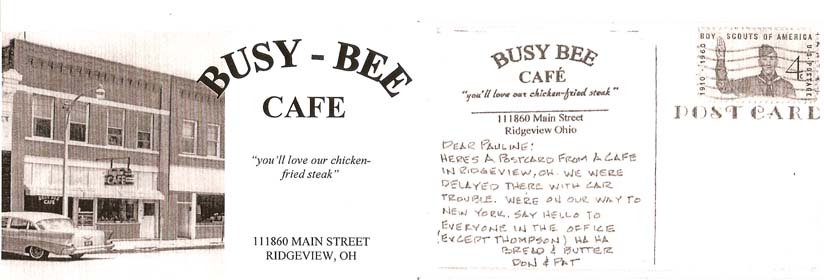 BUSY-BEE
CAFE
"you'll love our chicken-
fried steak"
111860 MAIN STREET
RIDGEVIEW, OH
BUSY BEE
CAFE
CAFE
BUSY BEE
CAFÉ
"you'll love our chicken-fried steak"
111860 Main Street
Ridgeview Ohio
DEAR PAULINE:
HERES A POSTCARD FROM A CAFE
IN RIDGEVIEW, OH. WE WERE
DELAYED THERE WITH CAR
TROUBLE. WERE ON OUR WAY TO
NEW YORK. SAY HELLO TO
EVERYONE IN THE OFFICE
(EXCEPT THOMPSON) HA HA
BREAD & BUTTER
DON & PAT
BOY SCOUTS OF AMERICA
1910-1960
4¢
U.S. POSTAGE
POST CARD